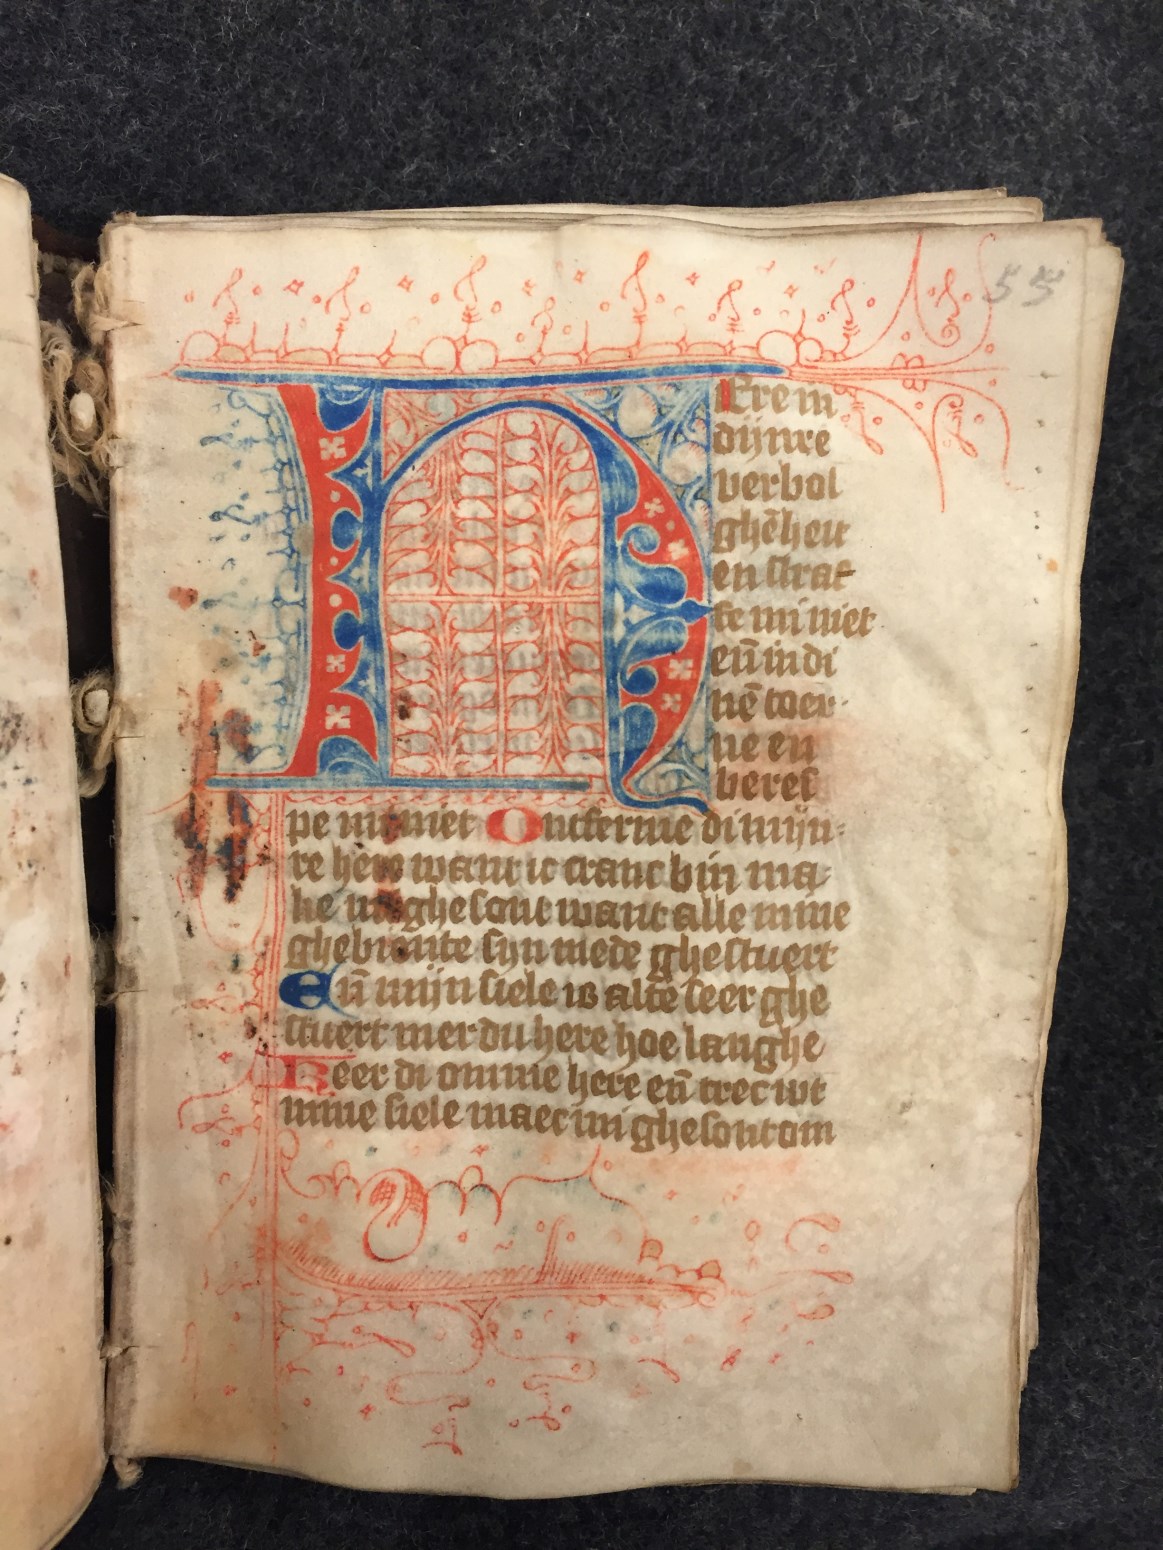 55
HEre in
dijnre
verbol
ghēheit
en straf
fe mi niet
eñ in di
nē toer
ne en
beres
pe mi niet Ontferme di mijn
re here want ic cranc bin ma
ke mi ghesont want alle mine
ghebeente syn mede ghestuert
Eñ mijn siele is alte seer ghe
stuert mer du here hoe langhe
Keer di omme here eñ trec wt
mine siele maec mi ghesont om